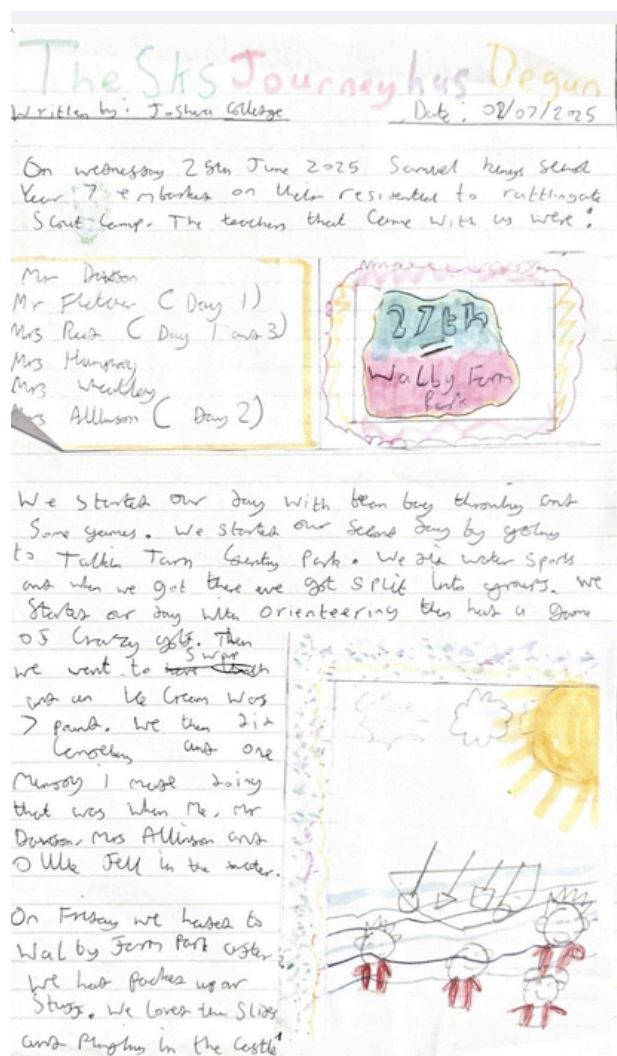 The SKS Journey has Begun
Written by: Joshua College
Date: 02/07/2025
On wednesday 25th June 2025 Samuel kings school
Year 7 embarked on their residential to rattlingate
Scout Camp. The teachers that came with us were:
Mr Dawson
Mr Fletcher (Day 1)
Mrs Reed (Day 1 and 3)
Mrs Humphrey
Mrs Wheatley
Mrs Allinson (Day 2)
27th
Walby Farm
Park
We started our day with bean bag throwing and
Some games. We started our second day by going
to Talkin Tarn Country Park. We did water sports
and when we got there we got split into groups. We
started our day with orienteering then had a game
of Crazy golf. Then
we went to swap
and an Ice Cream was
7 pound. We then did
Canoeing and one
Memory I made doing
that was when Me, Mr
Dawson, Mrs Allinson and
Ollie fell in the water.
On Friday we headed to
Walby Farm Park after
we had packed up our
Stuff. We loved the Slides
and Playing in the Castle!